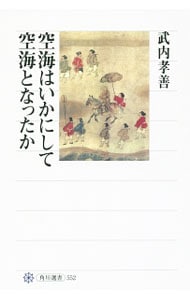 武内孝善
空海はいかにして
空海となったか
角川選書 552